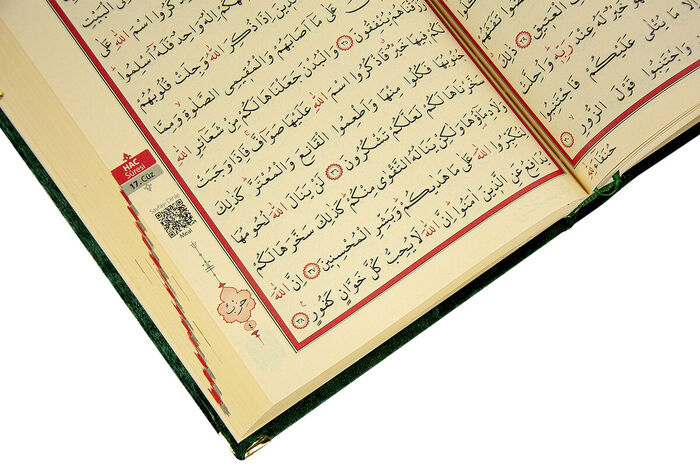 تَفَثَهُمْ
الْعَتِيقِ ٢٩ ذٰلِكَ
خَيْرٌ لَهُ عِنْدَ رَبِّهٖ وَاُحِلَّتْ
مَا يُتْلٰى عَلَيْكُمْ فَاجْتَنِبُوا
وَاجْتَنِبُوا قَوْلَ الزُّورِ ٣٠
حُنَفَاءَ لِلّٰهِ
الْبَيْتِ
اسْمَ اللّٰهِ عَلٰى
اِلٰهٌ وَاحِدٌ فَلَهُٓ اَسْلِمُوا
الَّذٖينَ اِذَا ذُكِرَ اللّٰهُ وَجِلَتْ قُلُوبُهُمْ
عَلٰى مَٓا اَصَابَهُمْ وَالْمُقٖيمِي الصَّلٰوةِ وَمِمَّا
رَزَقْنَاهُمْ يُنْفِقُونَ ٣٥ وَالْبُدْنَ جَعَلْنَاهَا لَكُمْ مِنْ شَعَٓائِرِ اللّٰهِ
لَكُمْ فٖيهَا خَيْرٌ فَاذْكُرُوا اسْمَ اللّٰهِ عَلَيْهَا صَوَٓافَّ فَاِذَا وَجَبَتْ
جُنُوبُهَا فَكُلُوا مِنْهَا وَاَطْعِمُوا الْقَانِعَ وَالْمُعْتَرَّ كَذٰلِكَ
سَخَّرْنَاهَا لَكُمْ لَعَلَّكُمْ تَشْكُرُونَ ٣٦ لَنْ يَنَالَ اللّٰهَ لُحُومُهَا
وَلَا دِمَٓاؤُهَا وَلٰكِنْ يَنَالُهُ التَّقْوٰى مِنْكُمْ كَذٰلِكَ سَخَّرَهَا لَكُمْ
لِتُكَبِّرُوا اللّٰهَ عَلٰى مَا هَدٰيكُمْ وَبَشِّرِ الْمُحْسِنٖينَ ٣٧ اِنَّ اللّٰهَ
يُدَافِعُ عَنِ الَّذٖينَ اٰمَنُوا اِنَّ اللّٰهَ لَا يُحِبُّ كُلَّ خَوَّانٍ كَفُورٍ ٣٨
HAC
Sûresi
17. Cüz
Meal
حزب